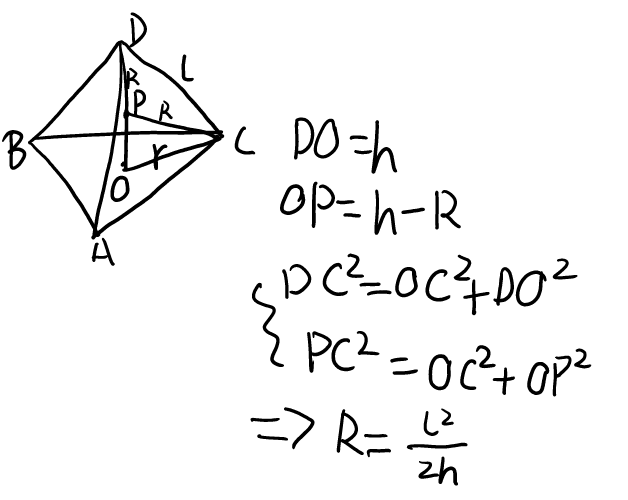 D
L
R
P
R
B
C
r
O
A
DO=h
OP=h-R
{ DC²=OC²+DO²
PC²=OC²+OP²
=> R=L²/2h